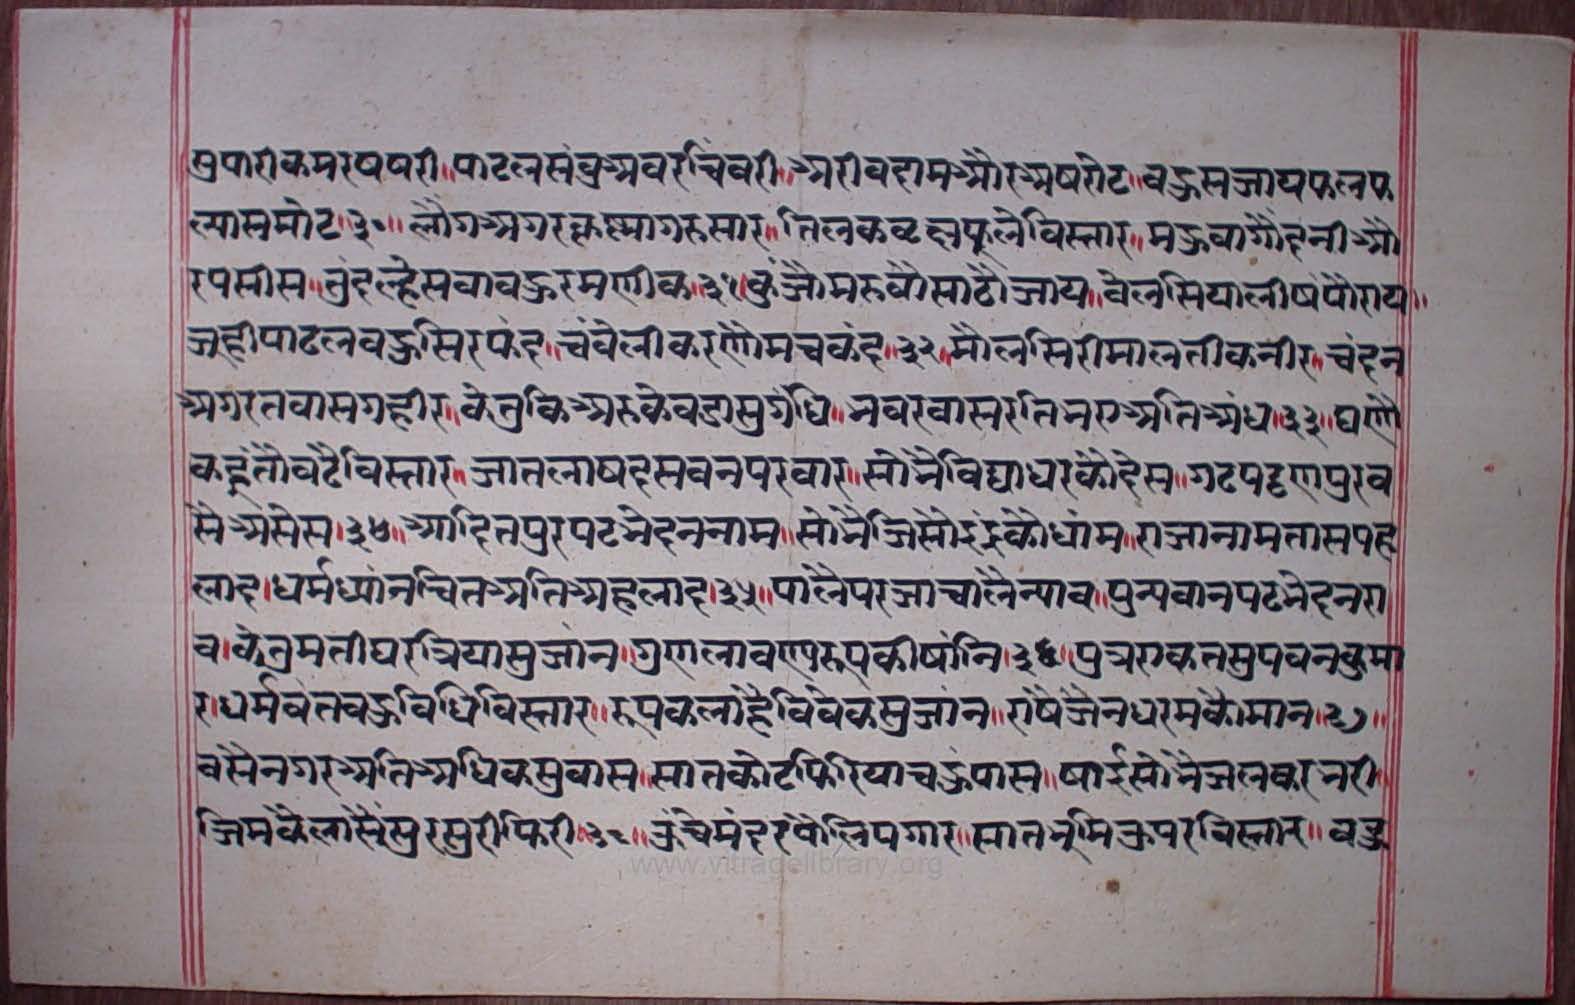 सुपारीकमरषषरी॥पाटलसंबुअवरचिंवरी॥अरीवदामऔरअषरोट॥वहुसजायफलफ
ल्यासमोट॥३०॥लौंगअगरक्रस्नागरुसार॥तिलकवटद्यफूलेविस्तार॥महुवागौंदनीऔ
रपसीस॥तुंदल्हेसवावहुरमणीक॥३१॥कुंजौमरुवौसाटौजाय॥वेलसियालीषंपौराय॥
जूहीपाटलवहुसिरषंद॥चंवेलीकरणौंमचकंद॥३२॥मौलसिरीमालतीकनीर॥चंदन
अगरतवासगहीर॥केतुकिअरुकेवडासुगंधि॥नवरवासरतिनरुअतिअंध॥३३॥घणौ
कहूंतौवटैविस्तार॥जातलाषदसवनपरवार॥सोनैविद्याधरकौदेस॥गटपट्टणपुरव
सैअसेस॥३४॥आदितपुरपटनेदननाम॥सोनैजिसौइंद्रकौधांम॥राजानामतासपह
लाद॥धर्मध्यांनचितअतिअहलाद॥३५॥पालैपरजाचालैन्याव॥पुन्यवानपटनेदनरा
व॥केतुमतीघरत्रियासुजांन॥गुणलावण्यरुपकीषांनि॥३६॥पुत्ररुकतसुपवनकुमा
र॥धर्मवंतवहुविधिविस्तार॥रुपकलांहैविवेकसुजांन॥राषैजैनधरमकौमान॥३७॥
वसैनगरअतिअधिकसुवास॥सातकोटफिरियाचहुंपास॥षाईसोनैजलकरनरी॥
जिमकैलासैंसुरसुरीफिरी॥३८॥ऊंचेमंदरकोलिपगार॥सातभूमिऊपरविस्तार॥वहु
www.vitragelibrary.org